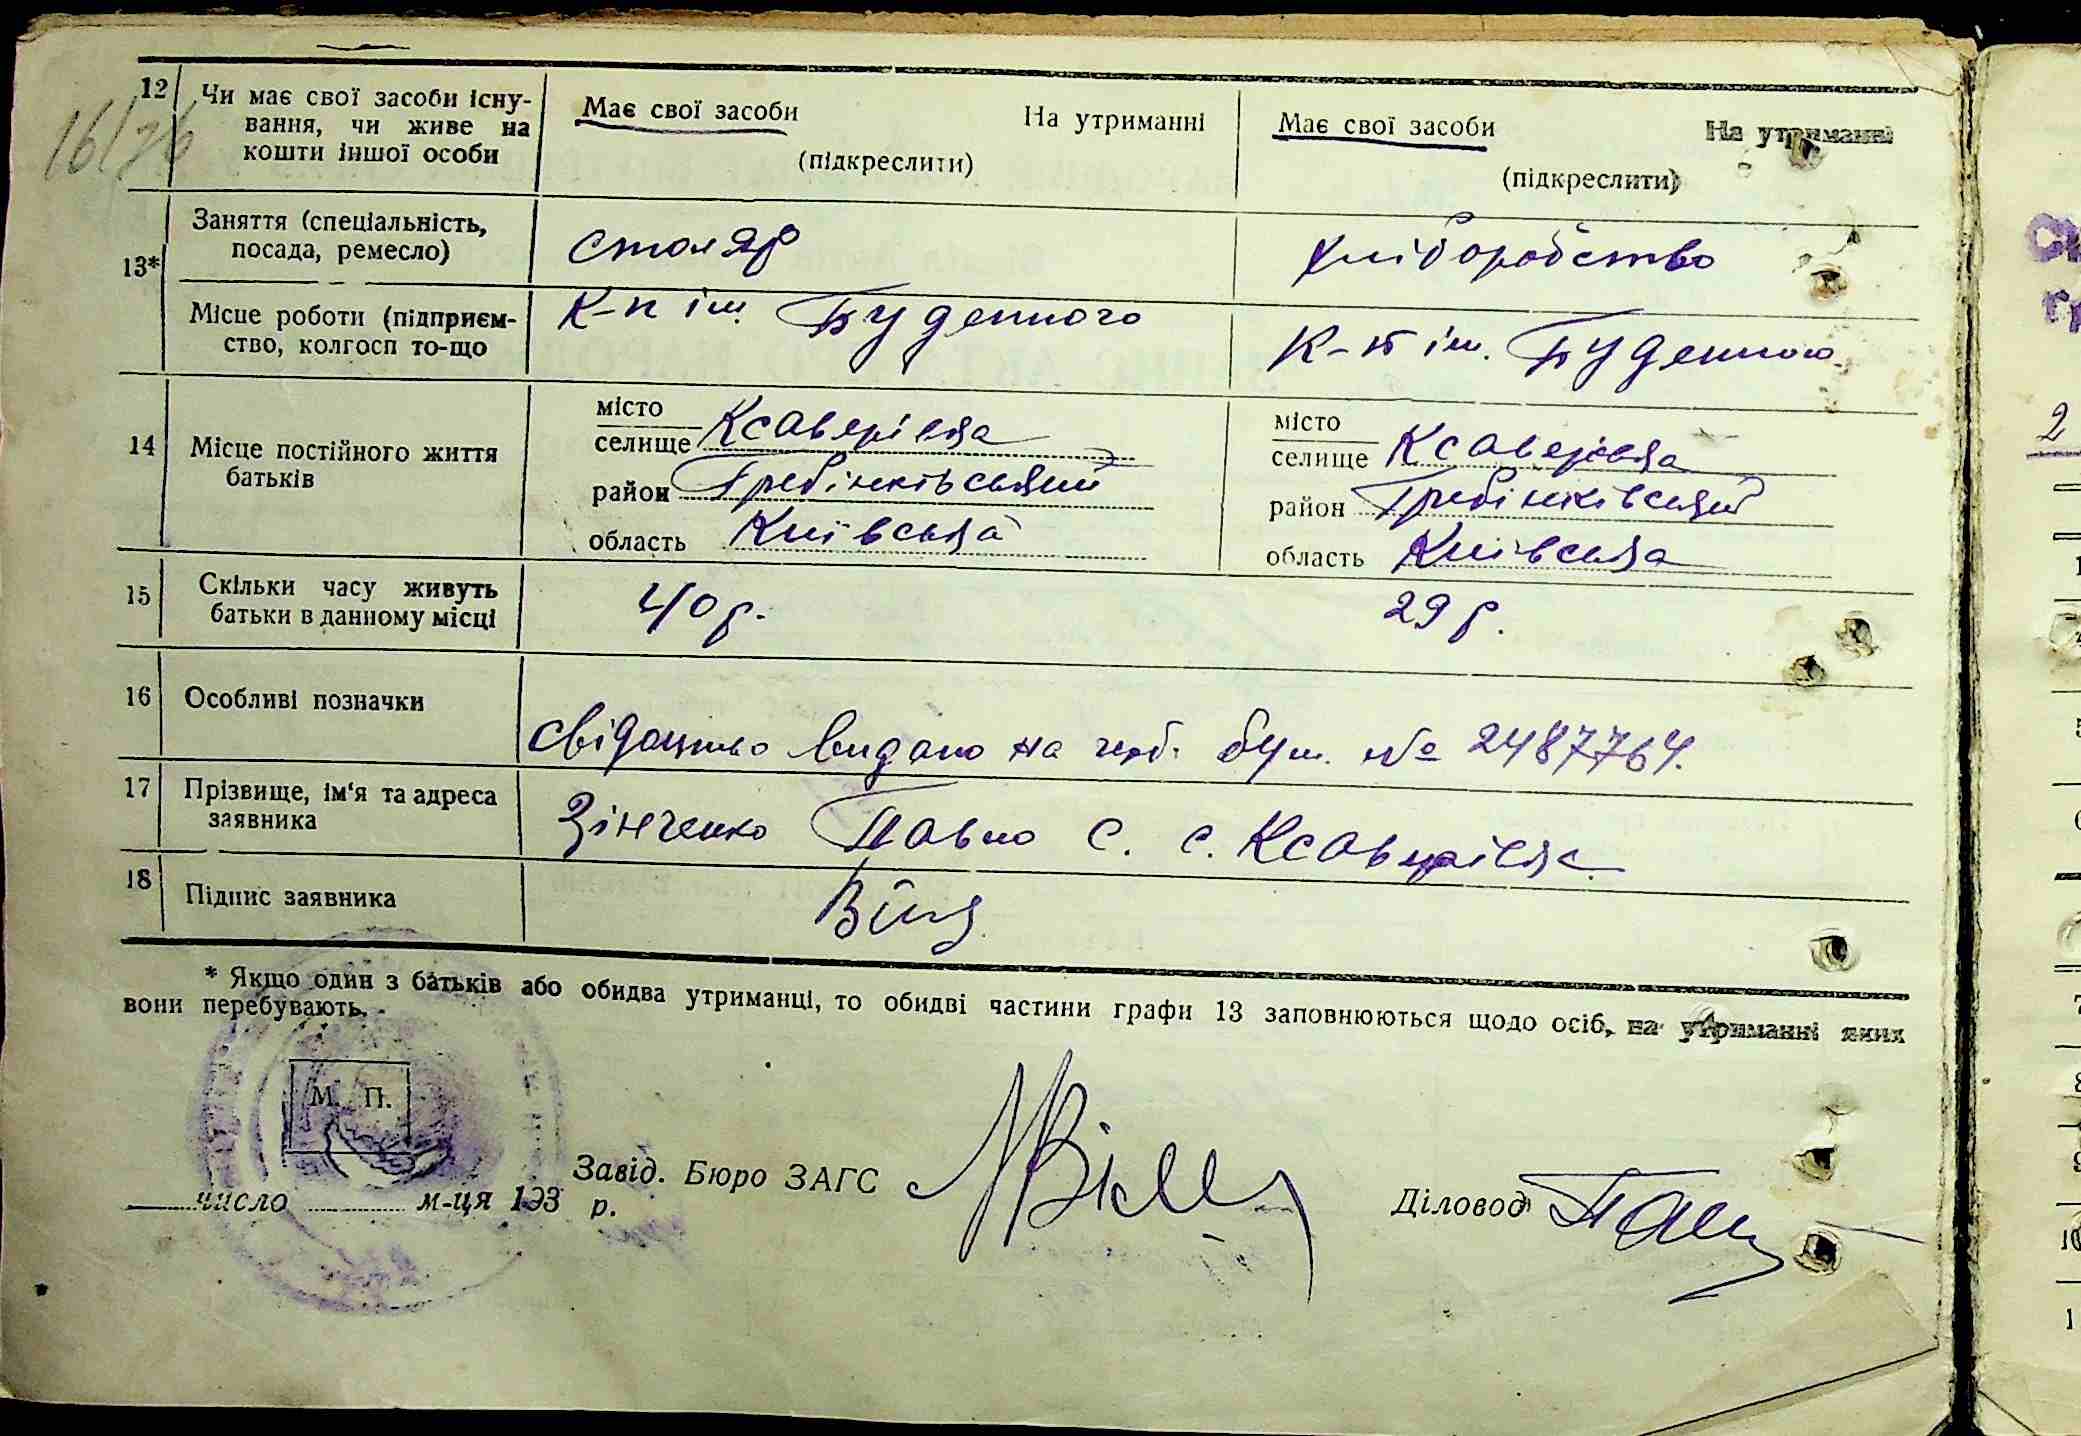 16/76
12 Чи має свої засоби існу-
вання, чи живе на
кошти іншої особи
Має свої засоби На утриманні
(підкреслити)
Має свої засоби На утриманні
(підкреслити)
13*
Заняття (спеціальність,
посада, ремесло)
столяр
хліборобство
Місце роботи (підприєм-
ство, колгосп то-що
К-п ім. Буденного
К-п ім. Буденного
14 Місце постійного життя
батьків
місто
селище Ксаверівка
район Гребінківський
область Київська
місто
селище Ксаверівка
район Гребінківський
область Київська
15 Скільки часу живуть
батьки в данному місці
40 р.
29 р.
16 Особливі позначки
свідоцтво видано на герб. бум. № 2487764.
17 Прізвище, ім'я та адреса
заявника
Зінченко Павло С. с. Ксаверівка
18 Підпис заявника
* Якщо один з батьків або обидва утриманці, то обидві частини графи 13 заповнюються щодо осіб, на утриманні яких
вони перебувають.
М. П.
Завід. Бюро ЗАГС
Діловод
число м-ця 193 р.